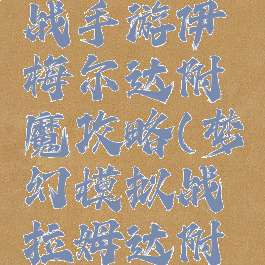 战手游伊
梅尔达附
魔攻略(梦
幻模拟战
拉姆达附